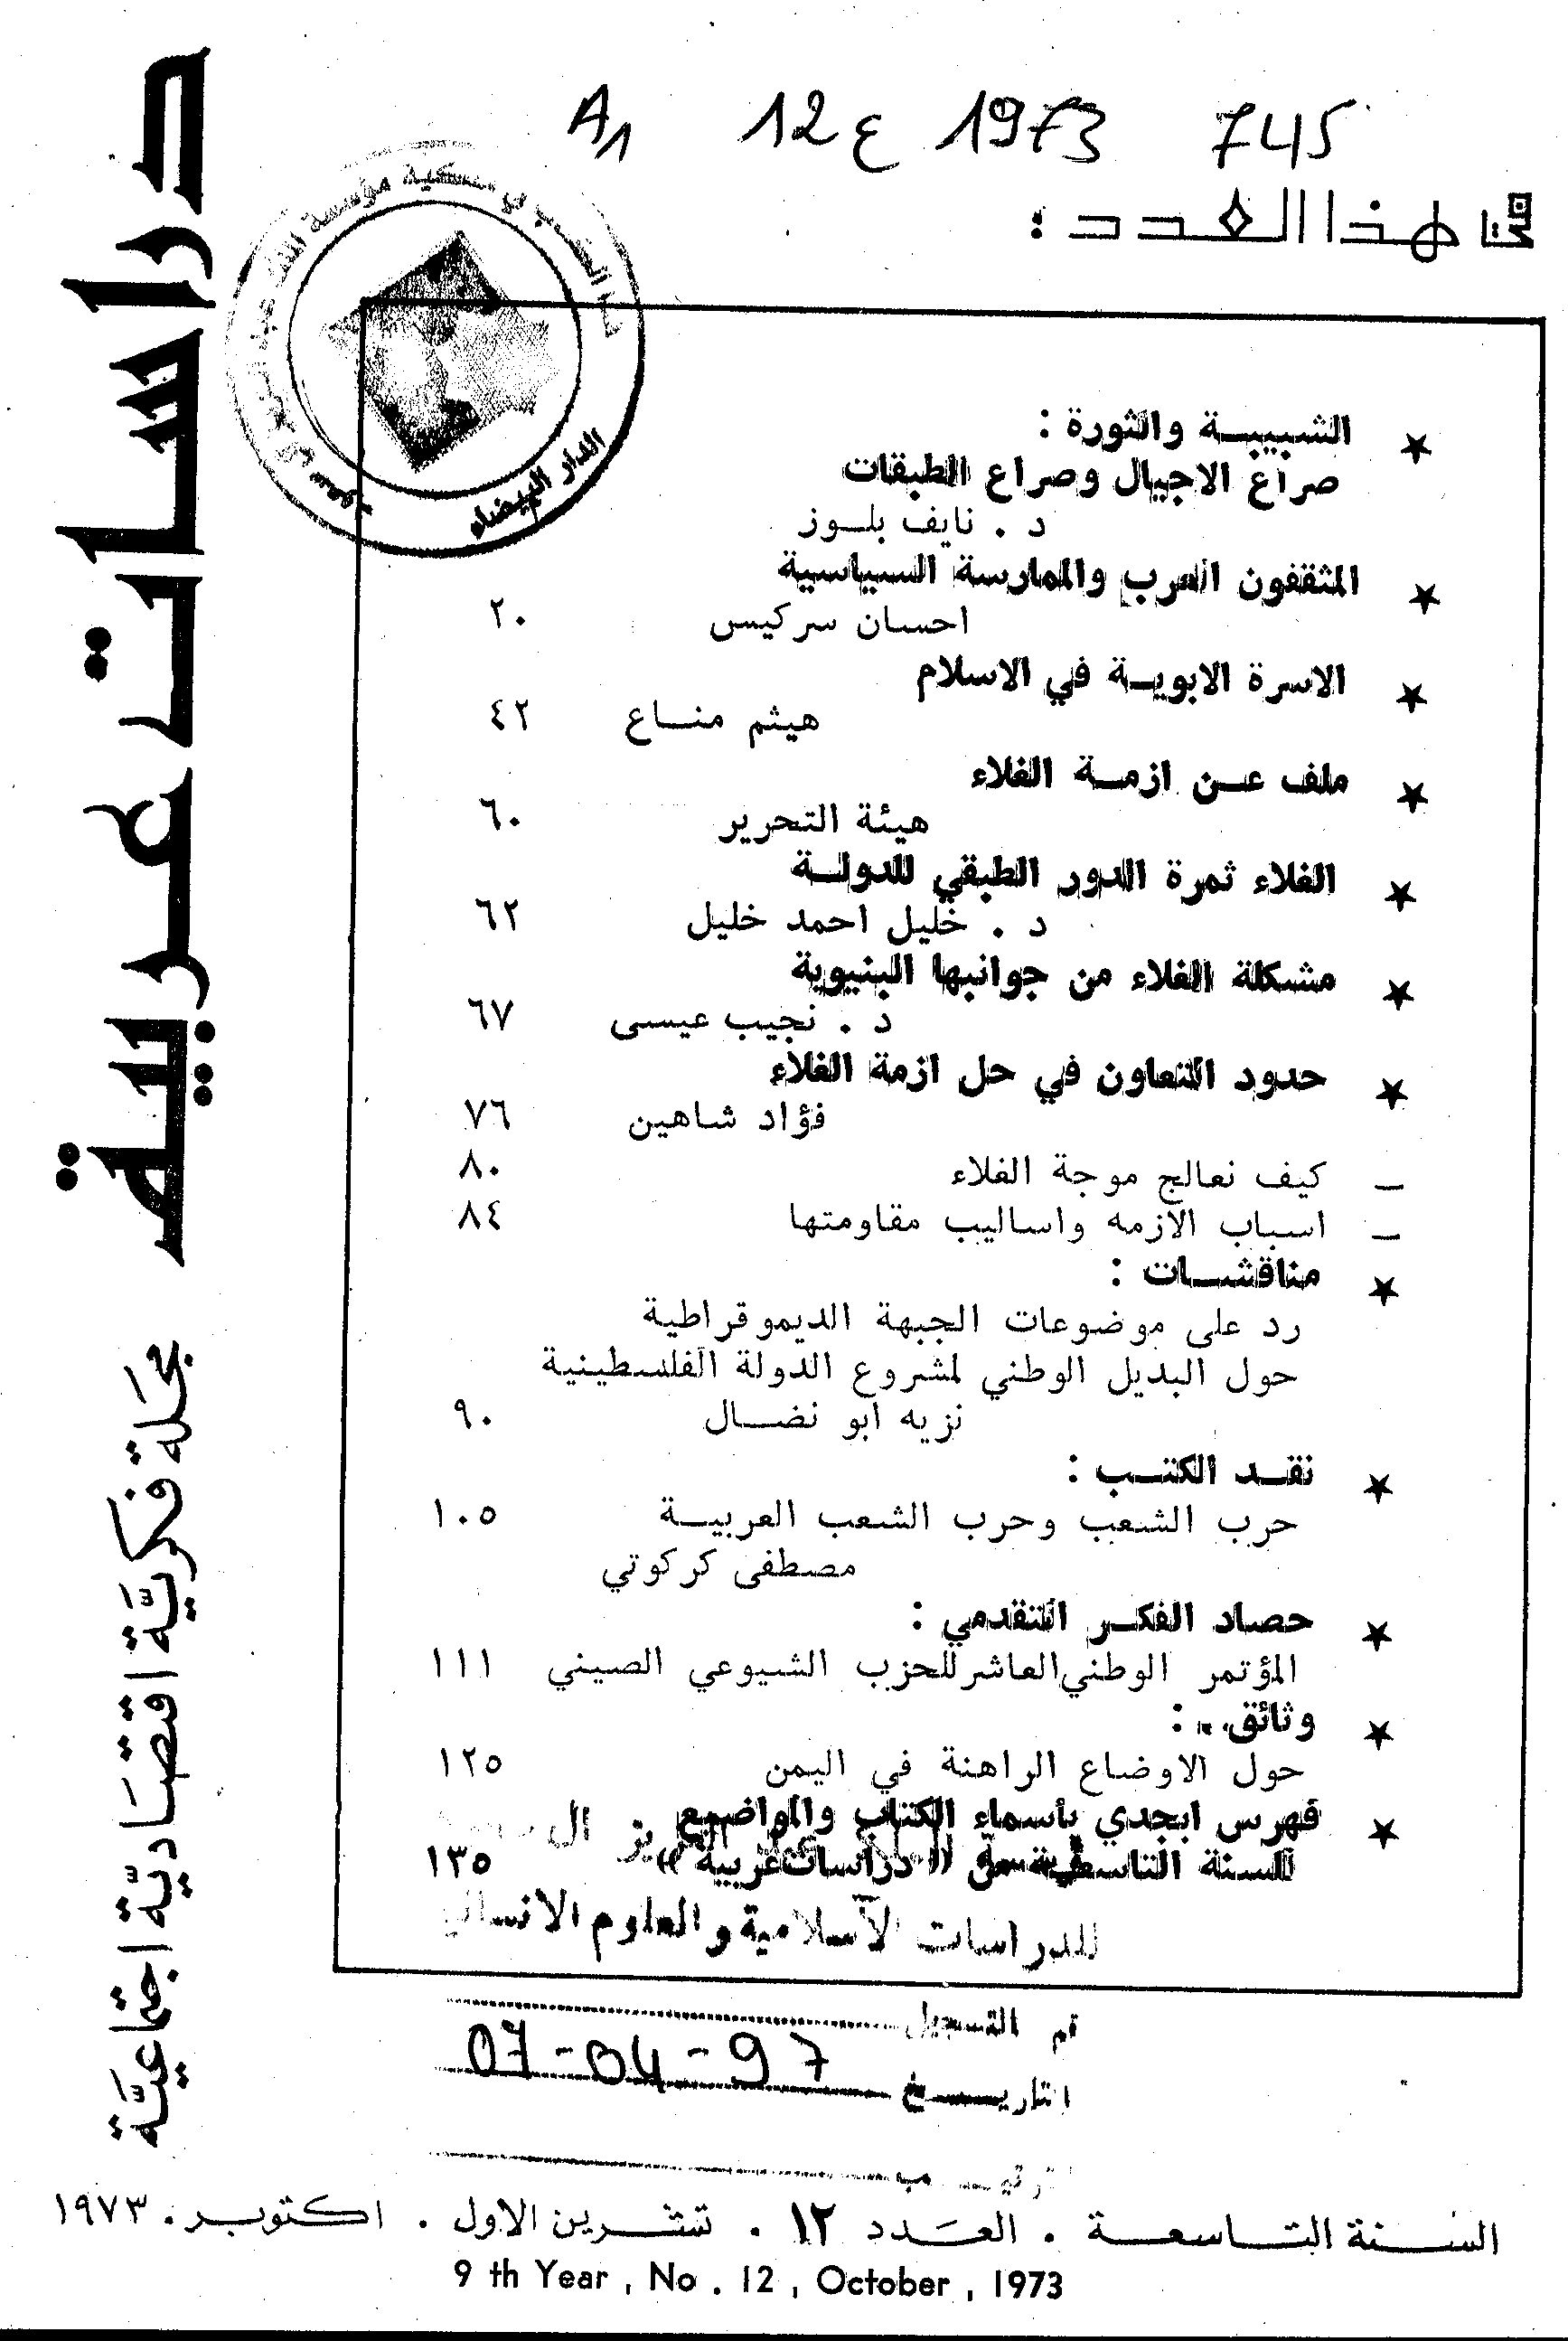 A1 12 ع 1973 745
في هذا العدد :
دراسات عربية
مجلة فكرية اقتصادية اجتماعية
مؤسسة الملك عبد العزيز آل سعود
الدار البيضاء
★ الشبيبة والثورة :
صراع الاجيال وصراع الطبقات
د . نايف بلوز
★ المثقفون العرب والممارسة السياسية
احسان سركيس ٢٠
★ الاسرة الابوية في الاسلام
هيثم مناع ٤٢
★ ملف عن ازمة الغلاء
هيئة التحرير ٦٠
★ الغلاء ثمرة الدور الطبقي للدولة
د . خليل احمد خليل ٦٢
★ مشكلة الغلاء من جوانبها البنيوية
د . نجيب عيسى ٦٧
★ حدود التعاون في حل ازمة الغلاء
فؤاد شاهين ٧٦
– كيف نعالج موجة الغلاء ٨٠
– اسباب الازمه واساليب مقاومتها ٨٤
★ مناقشات :
رد على موضوعات الجبهة الديموقراطية
حول البديل الوطني لمشروع الدولة الفلسطينية
نزيه ابو نضال ٩٠
★ نقد الكتب :
حرب الشعب وحرب الشعب العربية ١٠٥
مصطفى كركوتي
★ حصاد الفكر التقدمي :
المؤتمر الوطني العاشر للحزب الشيوعي الصيني ١١١
★ وثائق .. :
حول الاوضاع الراهنة في اليمن ١٢٥
★ فهرس ابجدي بأسماء الكتاب والمواضيع
للسنة التاسعة من « دراسات عربية » ١٣٥
للدراسات الاسلامية والعلوم الانسانية
قم التسجيل
التاريخ 07-04-97
السنة التاسعة . العدد ١٢ . تشرين الاول . اكتوبر . ١٩٧٣
9 th Year , No . 12 , October , 1973